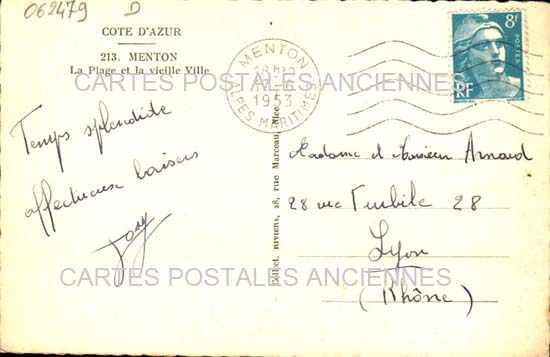 062479 D
COTE D'AZUR
213. MENTON
La Plage et la vieille Ville
MENTON
1953
ALPES MARITIMES
8F
POSTES
RF
CARTES POSTALES ANCIENNES
Temps splendide
affectueux baisers
Collect. RIVIERA, 28, rue Marceau, Nice
Madame et Monsieur Arnaud
28 rue Turbile 28
Lyon
(Rhône)
CARTES POSTALES ANCIENNES